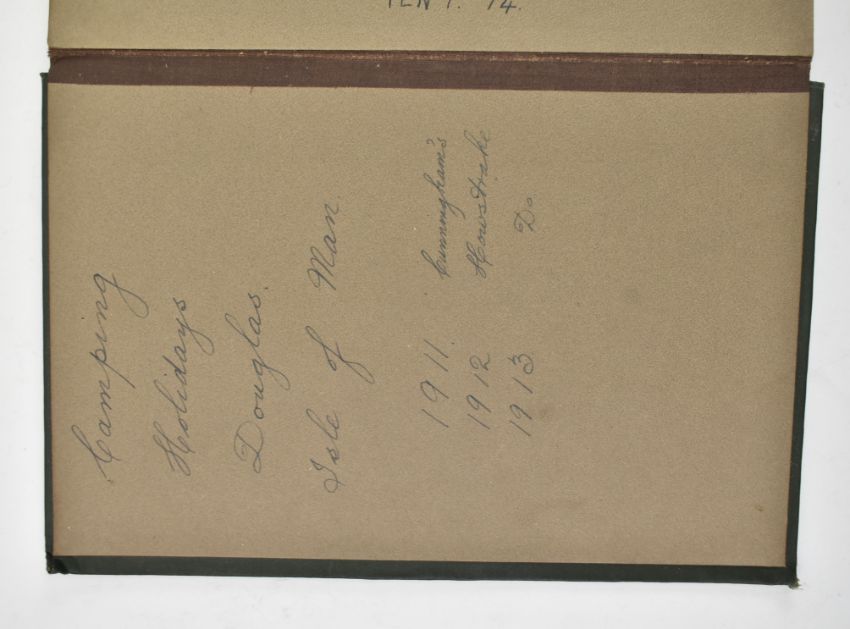 TENT. 14.
Camping
Holidays
Douglas.
Isle of Man.
1911. Cunningham's
1912 Howstrake
1913 Do